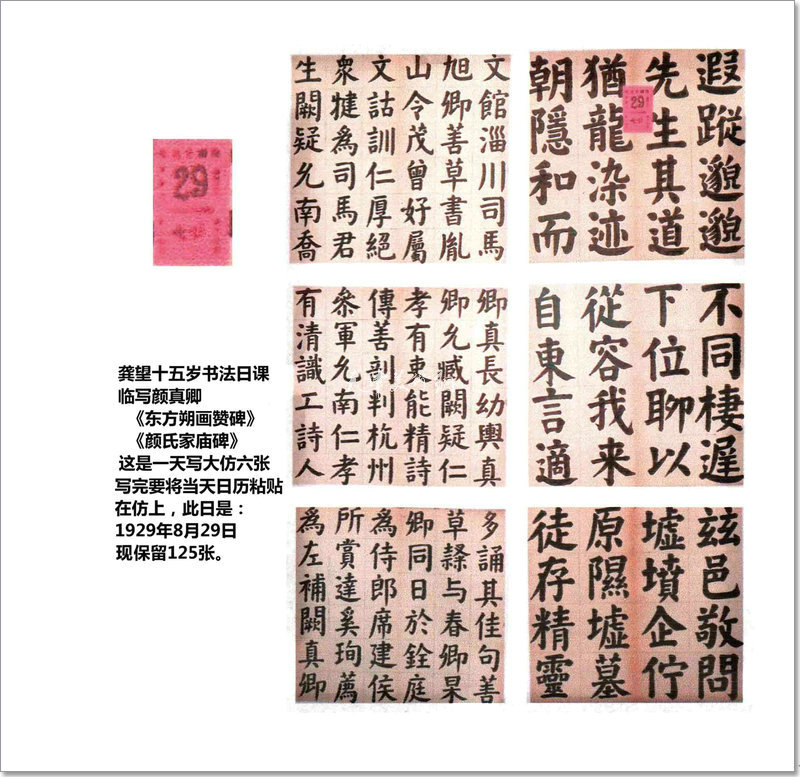 29
龚望十五岁书法日课
临写颜真卿
《东方朔画赞碑》
《颜氏家庙碑》
这是一天写大仿六张
写完要将当天日历粘贴
在仿上，此日是：
1929年8月29日
现保留125张。
遐蹤邈邈
先生其道
29
猶龍染迹
朝隱和而
文館淄川司馬
旭卿善草書胤
山令茂曾好屬
文詁訓仁厚絕
衆犍為司馬君
生闕疑允南喬
不同棲遲
下位聊以
從容我来
自東言適
卿真長幼輿真
卿允臧闕疑仁
孝有吏能精詩
傳善剖判杭州
叅軍允南仁孝
有清識工詩人
茲邑敬問
墟墳企佇
原隰墟墓
徒存精靈
多誦其佳句善
草隸与春卿杲
卿同日於銓庭
為侍郎席建侯
所賞達奚珣薦
為左補闕真卿